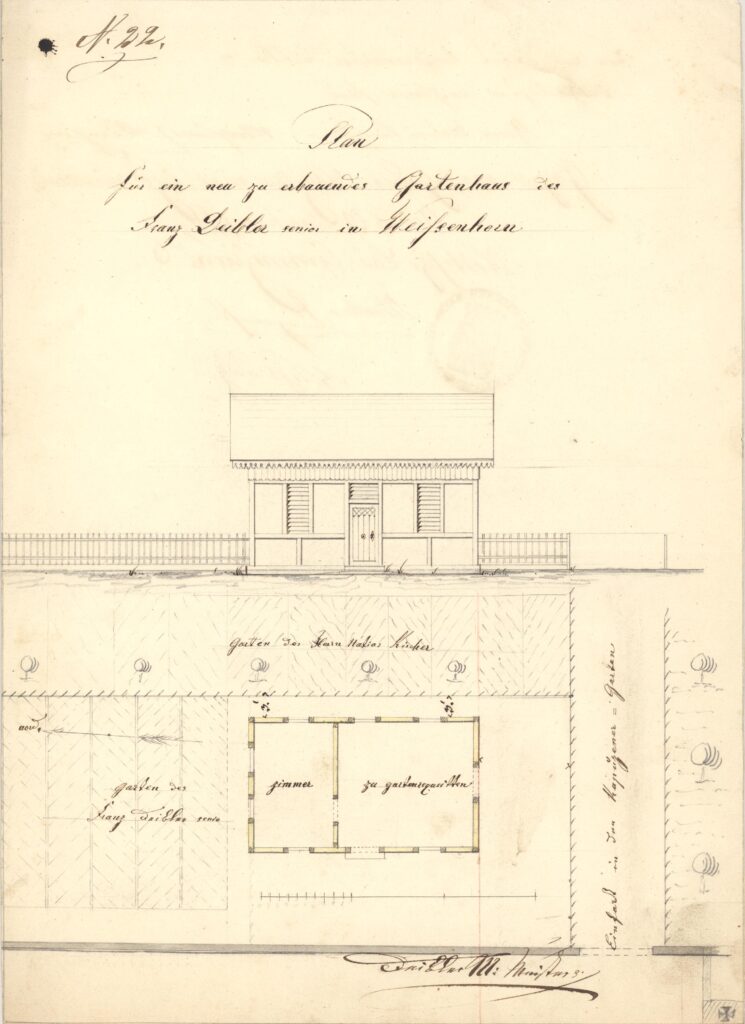 N. 22.
Plan
für ein neu zu erbauendes Gartenhaus des
Franz Deibler senior in Weißenhorn
Garten des Herrn Kircher
3.'
3.'
nord.
zimmer
zu gartenrequisitten
garten des
Franz Deibler senior
Einfart in den Kapuzener = Garten
Deibler M: Meister